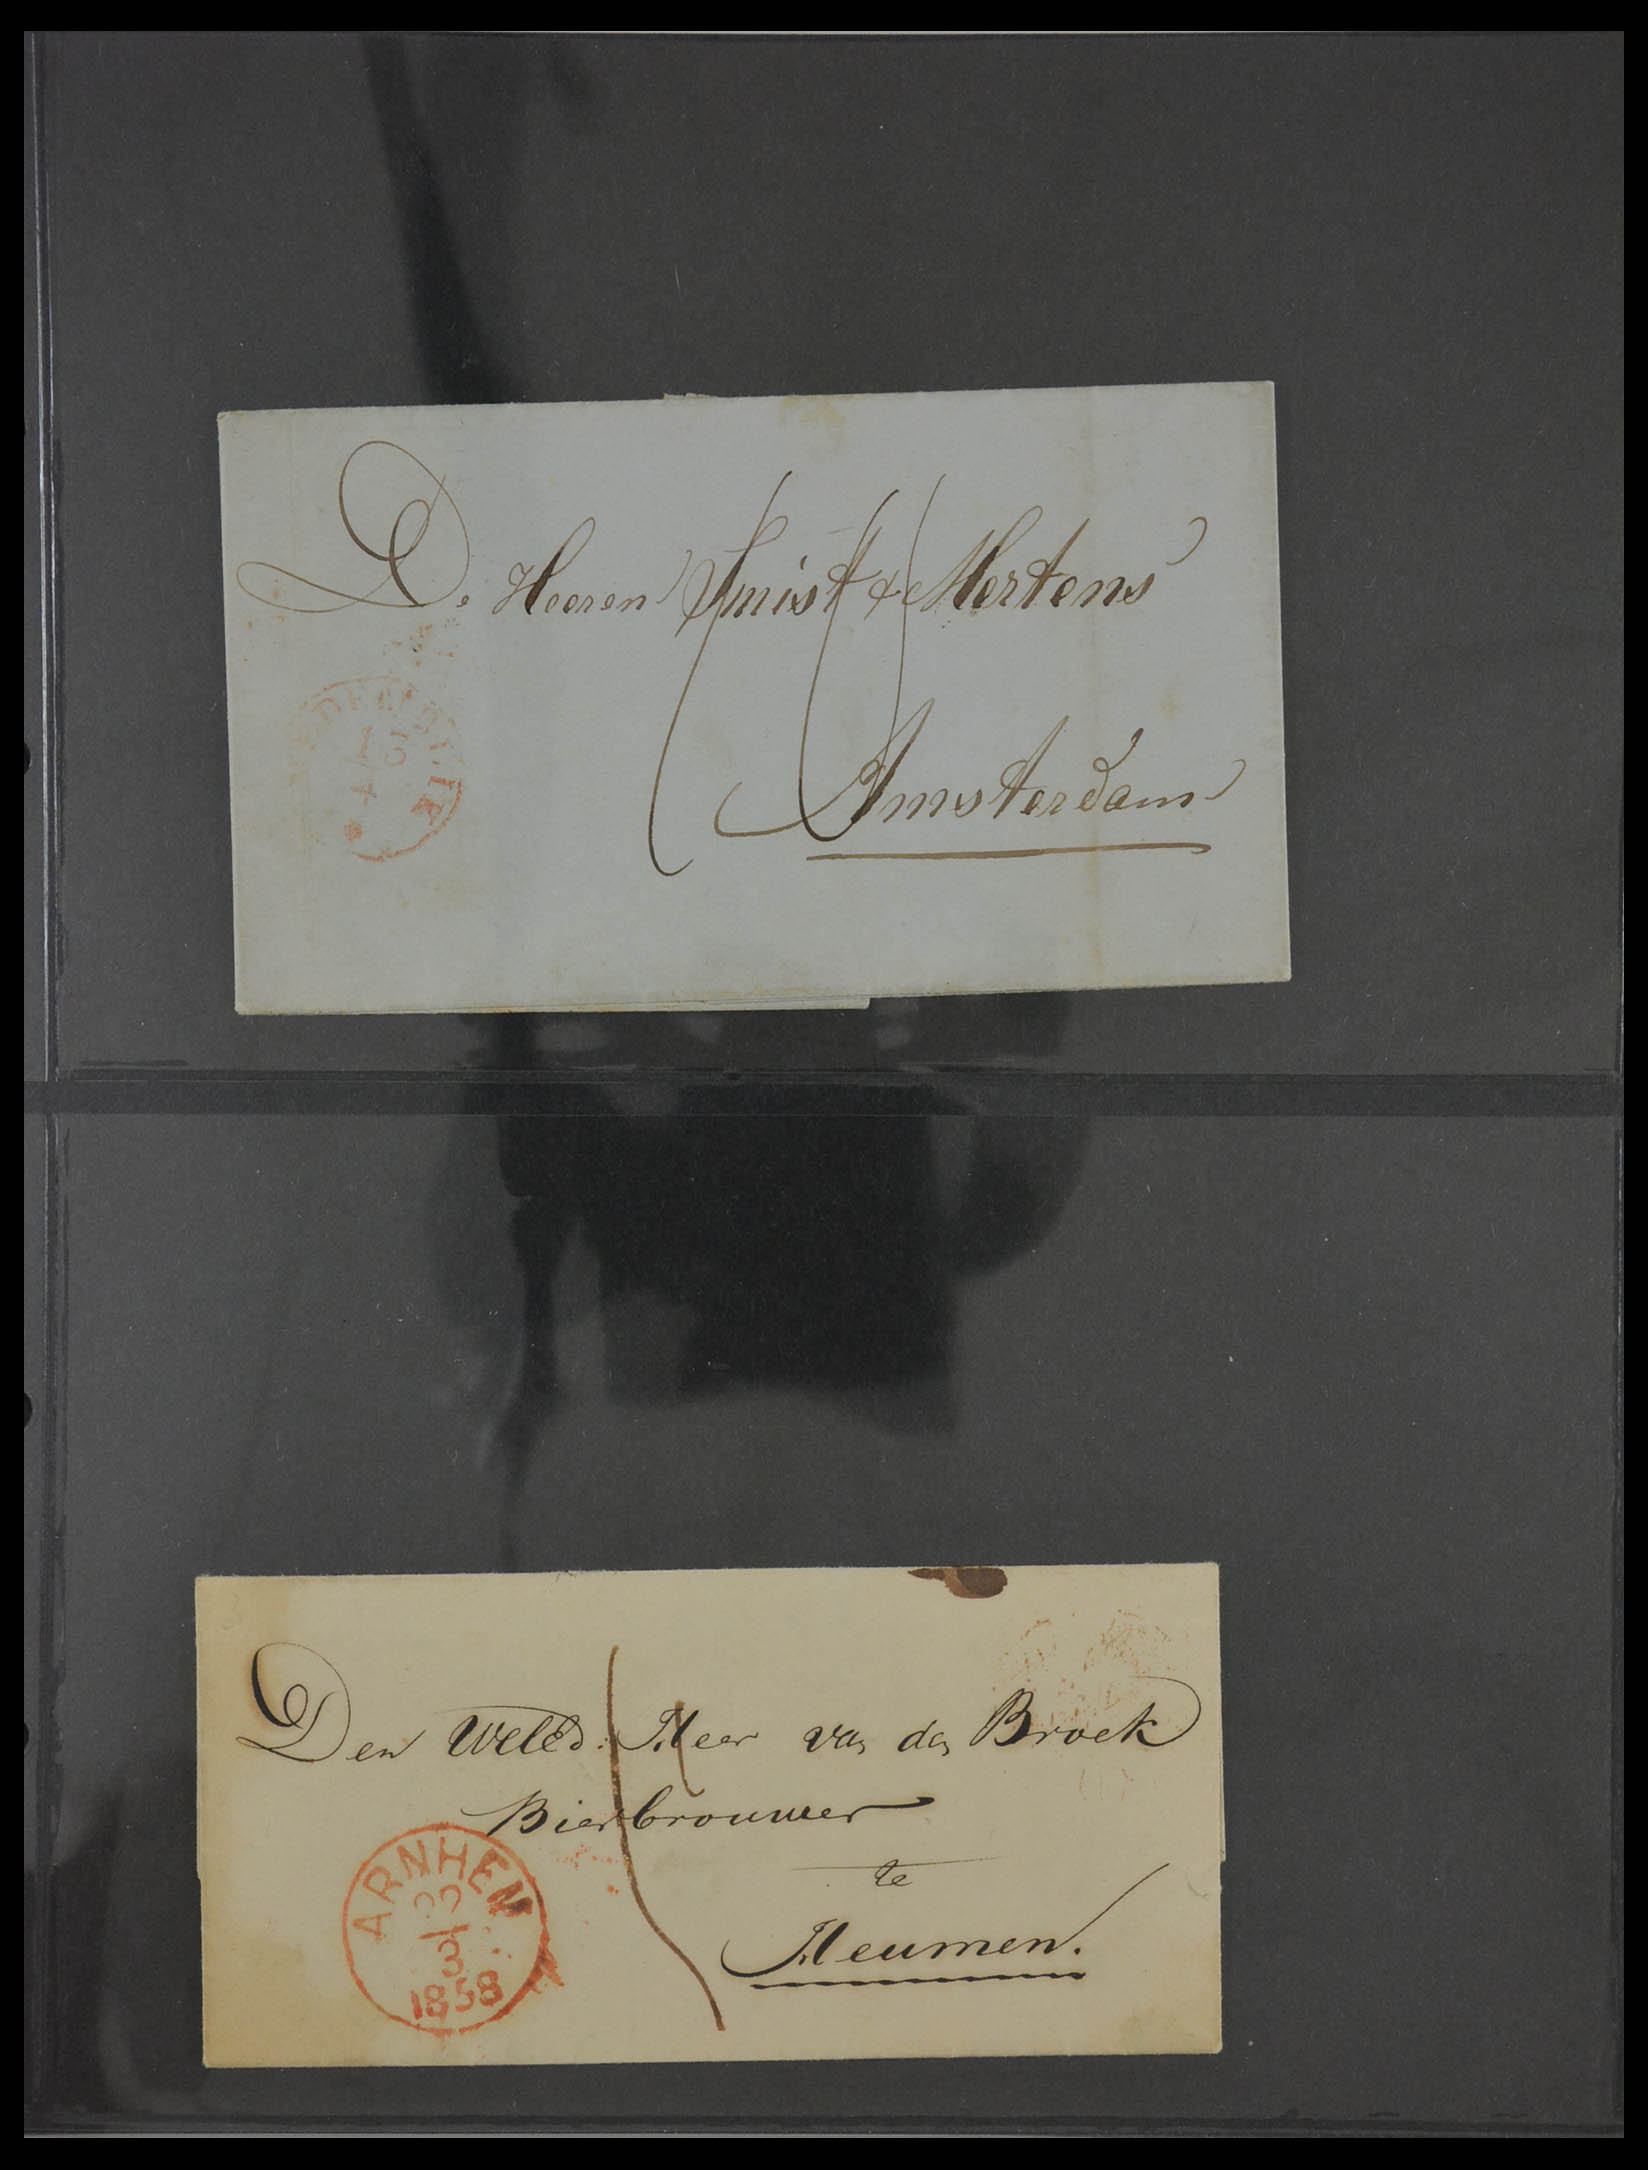 De Heeren Smist & Mertens
Amsterdam
Den WelEd: Heer van den Broek
Bierbrouwer
te
Heumen.
ARNHEM
22
3
1858